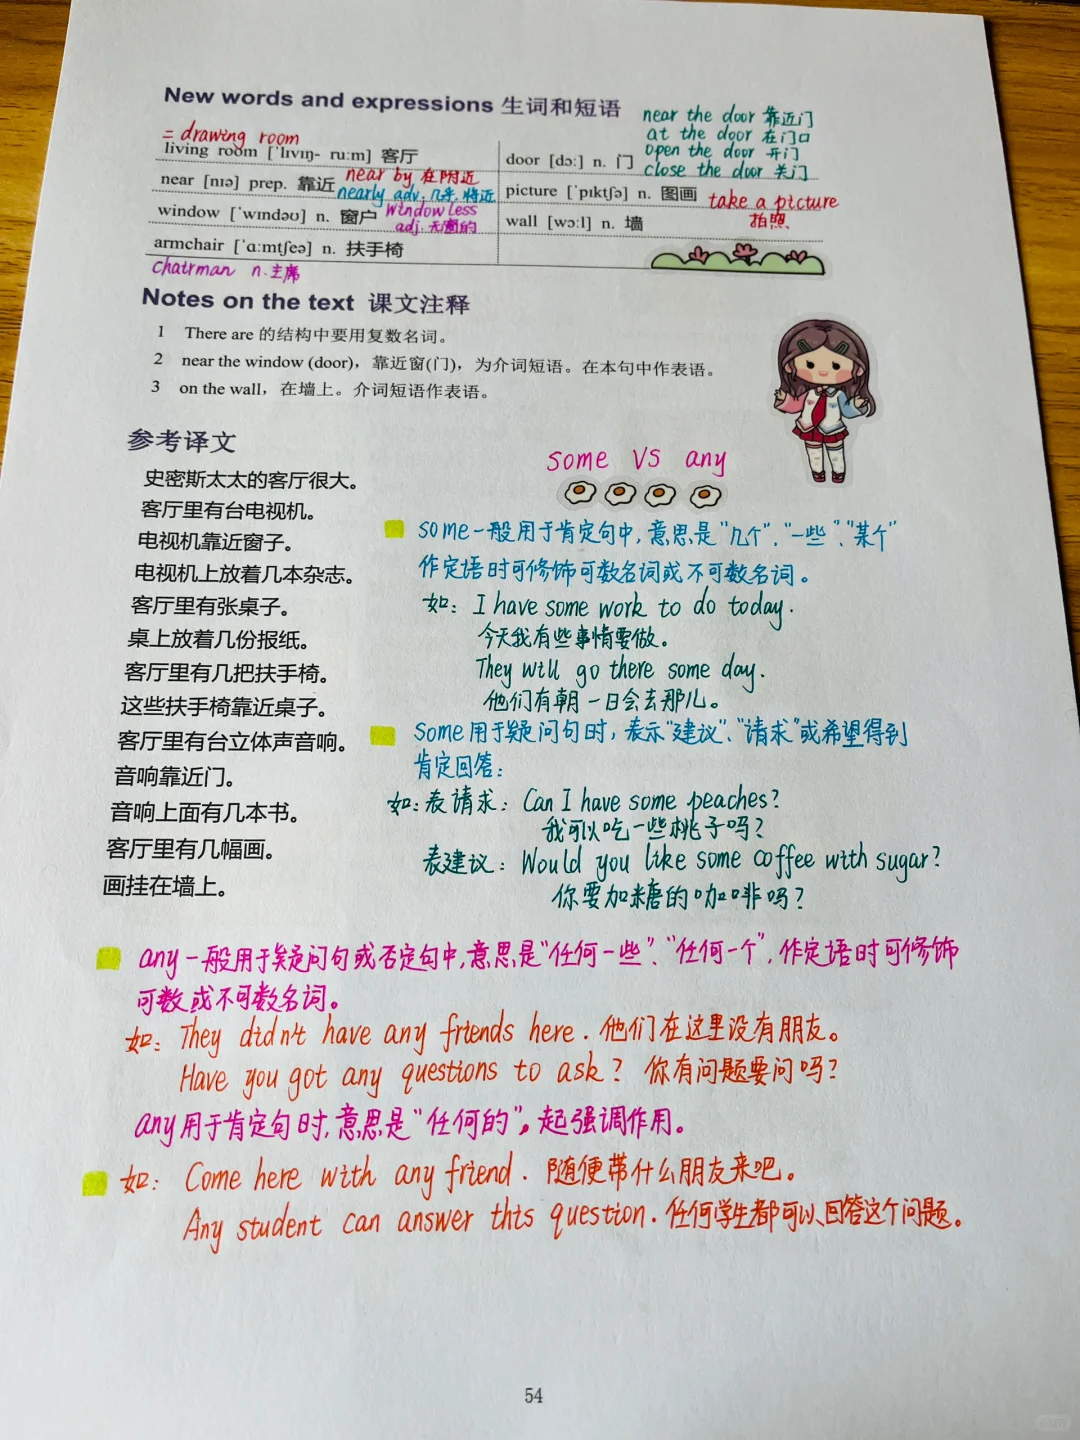 New words and expressions 生词和短语
= drawing room
living room [ˈlɪvɪŋ- ruːm] 客厅
near [nɪə] prep. 靠近
near by 在附近
nearly adv. 几乎, 将近
window [ˈwɪndəʊ] n. 窗户
windowless
adj. 无窗的
armchair [ˈɑːmtʃeə] n. 扶手椅
chairman n. 主席
near the door 靠近门
at the door 在门口
open the door 开门
close the door 关门
door [dɔː] n. 门
picture [ˈpɪktʃə] n. 图画
take a picture
拍照
wall [wɔːl] n. 墙
Notes on the text 课文注释
1 There are 的结构中要用复数名词。
2 near the window (door)，靠近窗(门)，为介词短语。在本句中作表语。
3 on the wall，在墙上。介词短语作表语。
参考译文
史密斯太太的客厅很大。
客厅里有台电视机。
电视机靠近窗子。
电视机上放着几本杂志。
客厅里有张桌子。
桌上放着几份报纸。
客厅里有几把扶手椅。
这些扶手椅靠近桌子。
客厅里有台立体声音响。
音响靠近门。
音响上面有几本书。
客厅里有几幅画。
画挂在墙上。
some VS any
some一般用于肯定句中,意思是"几个"、"一些"、"某个"
作定语时可修饰可数名词或不可数名词。
如: I have some work to do today.
今天我有些事情要做。
They will go there some day.
他们有朝一日会去那儿。
Some用于疑问句时, 表示"建议"、"请求"或希望得到
肯定回答:
如: 表请求: Can I have some peaches?
我可以吃一些桃子吗?
表建议: Would you like some coffee with sugar?
你要加糖的咖啡吗?
any一般用于疑问句或否定句中,意思是"任何一些"、"任何一个",作定语时可修饰
可数或不可数名词。
如: They didn't have any friends here. 他们在这里没有朋友。
Have you got any questions to ask? 你有问题要问吗?
any用于肯定句时,意思是"任何的"。起强调作用。
如: Come here with any friend. 随便带什么朋友来吧。
Any student can answer this question. 任何学生都可以回答这个问题。
54